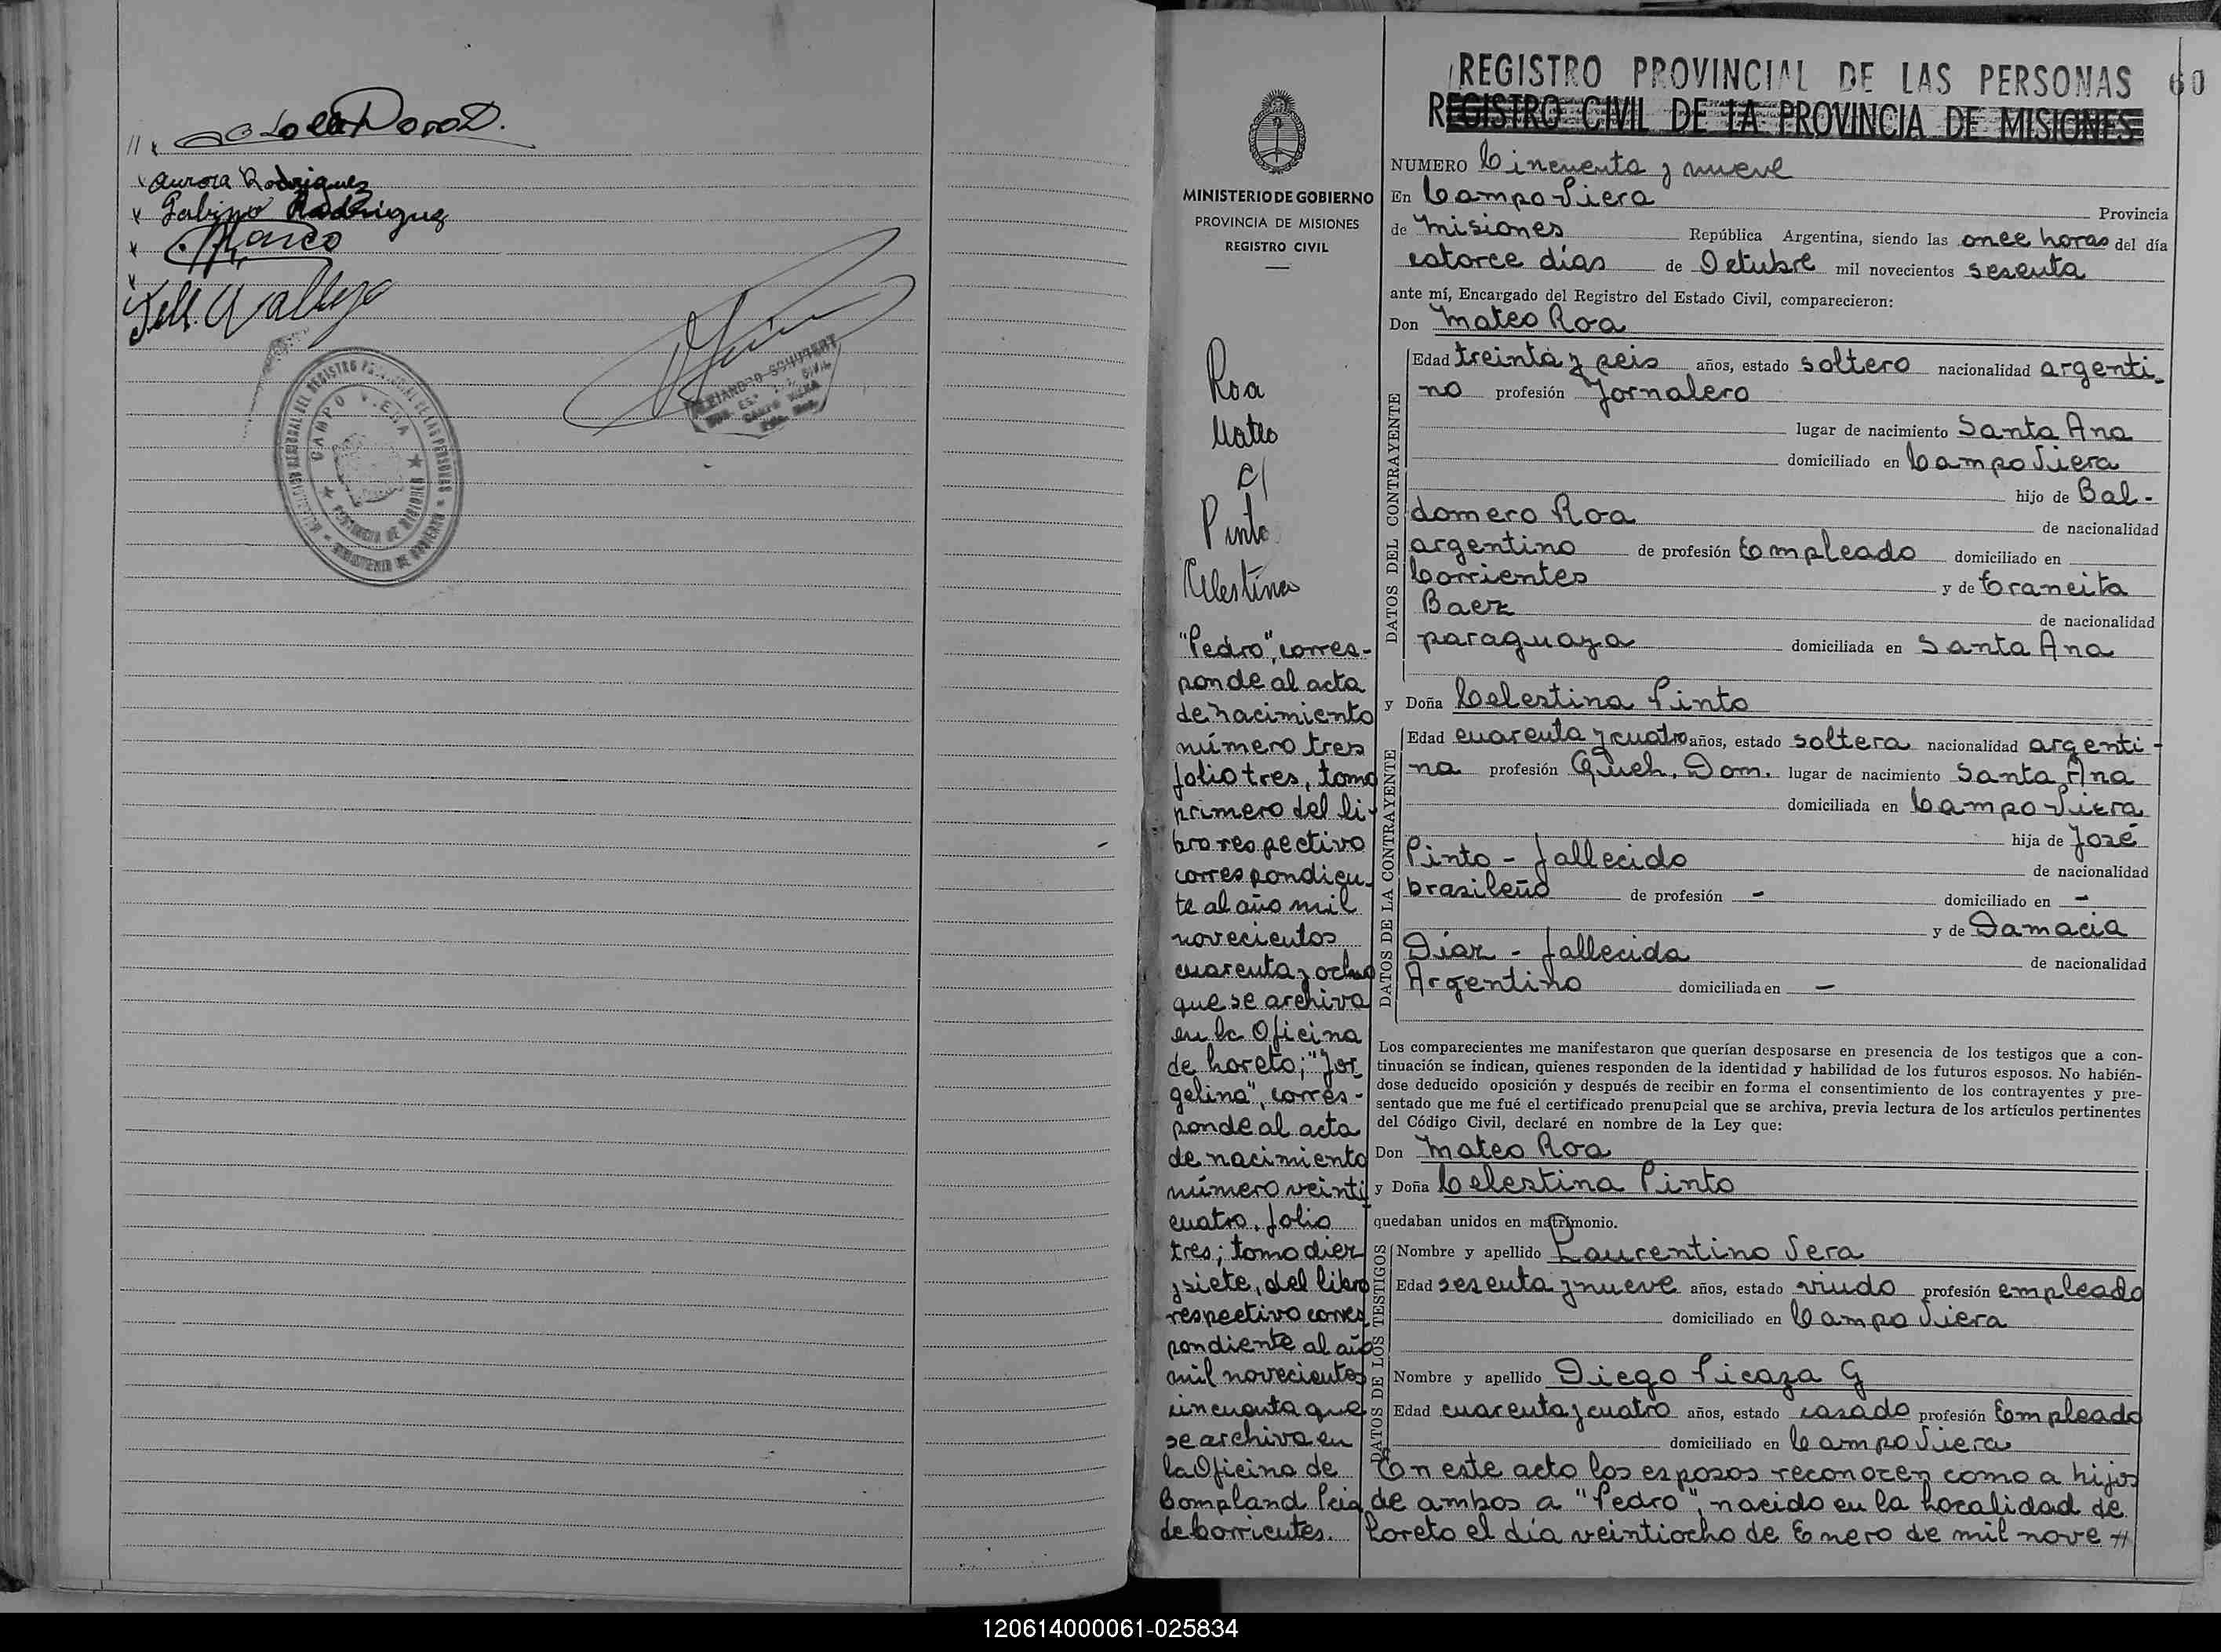 Aurora Rodriguez
Gabino Rodriguez
CAMPO VIERA
PROVINCIA DE MISIONES
REGISTRO PROVINCIAL DE LAS PERSONAS 60
REGISTRO CIVIL DE LA PROVINCIA DE MISIONES
MINISTERIO DE GOBIERNO
PROVINCIA DE MISIONES
REGISTRO CIVIL
Roa
Mateo
c/
Pinto
Celestina
"Pedro", corres-
ponde al acta
de nacimiento
número tres
folio tres, tomo
primero del li-
bro respectivo
correspondien-
te al año mil
novecientos
cuarenta y ocho
que se archiva
en la Oficina
de Loreto; "Jor
gelina", corres-
ponde al acta
de nacimiento
número veinti
cuatro, folio
tres; tomo diez
y siete, del libro
respectivo corres
pondiente al año
mil novecientos
cincuenta que
se archiva en
la Oficina de
Bompland Pcia
de Corrientes.
NUMERO Cincuenta y nueve
En Campo Viera Provincia
de Misiones República Argentina, siendo las once horas del día
catorce días de Octubre mil novecientos sesenta
ante mí, Encargado del Registro del Estado Civil, comparecieron:
Don Mateo Roa
DATOS DEL CONTRAYENTE
Edad treinta y seis años, estado soltero nacionalidad argenti-
no profesión Jornalero
lugar de nacimiento Santa Ana
domiciliado en Campo Viera
hijo de Bal-
domero Roa de nacionalidad
argentino de profesión Empleado domiciliado en
Corrientes y de Crancita
Baez de nacionalidad
paraguaya domiciliada en Santa Ana
y Doña Celestina Pinto
DATOS DE LA CONTRAYENTE
Edad cuarenta y cuatro años, estado soltera nacionalidad argenti-
na profesión Queh. Dom. lugar de nacimiento Santa Ana
domiciliada en Campo Viera
hija de José
Pinto - fallecido de nacionalidad
brasileño de profesión - domiciliado en -
y de Damacia
Díaz - fallecida de nacionalidad
Argentino domiciliada en -
Los comparecientes me manifestaron que querían desposarse en presencia de los testigos que a con-
tinuación se indican, quienes responden de la identidad y habilidad de los futuros esposos. No habién-
dose deducido oposición y después de recibir en forma el consentimiento de los contrayentes y pre-
sentado que me fué el certificado prenupcial que se archiva, previa lectura de los artículos pertinentes
del Código Civil, declaré en nombre de la Ley que:
Don Mateo Roa
y Doña Celestina Pinto
quedaban unidos en matrimonio.
DATOS DE LOS TESTIGOS
Nombre y apellido Laurentino Vera
Edad sesenta y nueve años, estado viudo profesión empleado
domiciliado en Campo Viera
Nombre y apellido Diego Picaza G
Edad cuarenta y cuatro años, estado casado profesión Empleado
domiciliado en Campo Viera
En este acto los esposos reconocen como a hijos
de ambos a "Pedro", nacido en la Localidad de
Loreto el día veintiocho de Enero de mil nove //
120614000061-025834